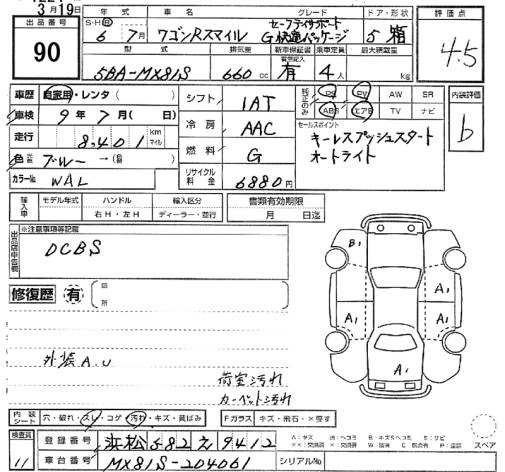 3月19日
出品番号
90
年式 車名 グレード ドア・形状
S・H R
6年 7月 ワゴンRスマイル セーフティサポート
G快適パッケージ 5 箱
評価点
4.5
型式 排気量 新車保証書 乗車定員 最大積載量
5BA-MX81S 660cc 有 4人 kg
車歴 自家用・レンタ( )
車検 9年7月(日)
走行 8,401 km マイル
色 ブルー→(色)
カラーNo WAL
シフト 1AT
冷房 AAC
燃料 G
リサイクル料金 6880円
純正のみ PS PW AW SR
ABS エアB TV ナビ
内装評価
b
セールスポイント
キーレスプッシュスタート
オートライト
輸入車 モデル年式 ハンドル 輸入区分
右H・左H ディーラー・並行
書類有効期限
月 日迄
出品店申告欄
※注意事項等記載
DCBS
修復歴 有 箇所
B1
A1 A1
A1 A1
A1
外装A.U
荷室汚れ
カーペット汚れ
内装シート 穴・破れ・スレ・コゲ・汚れ・キズ・黄ばみ
Fガラス キズ・飛石・×要す
スペア
検査員
11
登録番号 浜松582え9412
車台番号 MX81S-204061
シリアルNo
A:キズ U:ヘコミ B:キズ&ヘコミ S:サビ